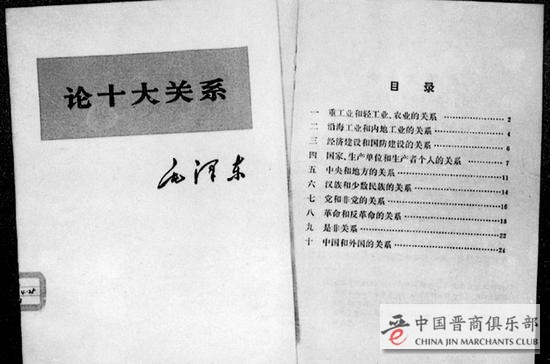 论十大关系
毛泽东
目录
一 重工业和轻工业、农业的关系 2
二 沿海工业和内地工业的关系 4
三 经济建设和国防建设的关系 6
四 国家、生产单位和生产者个人的关系 7
五 中央和地方的关系 11
六 汉族和少数民族的关系 14
七 党和非党的关系 16
八 革命和反革命的关系 18
九 是非关系 22
十 中国和外国的关系 24
中国晋商俱乐部
CHINA JIN MERCHANTS CLUB